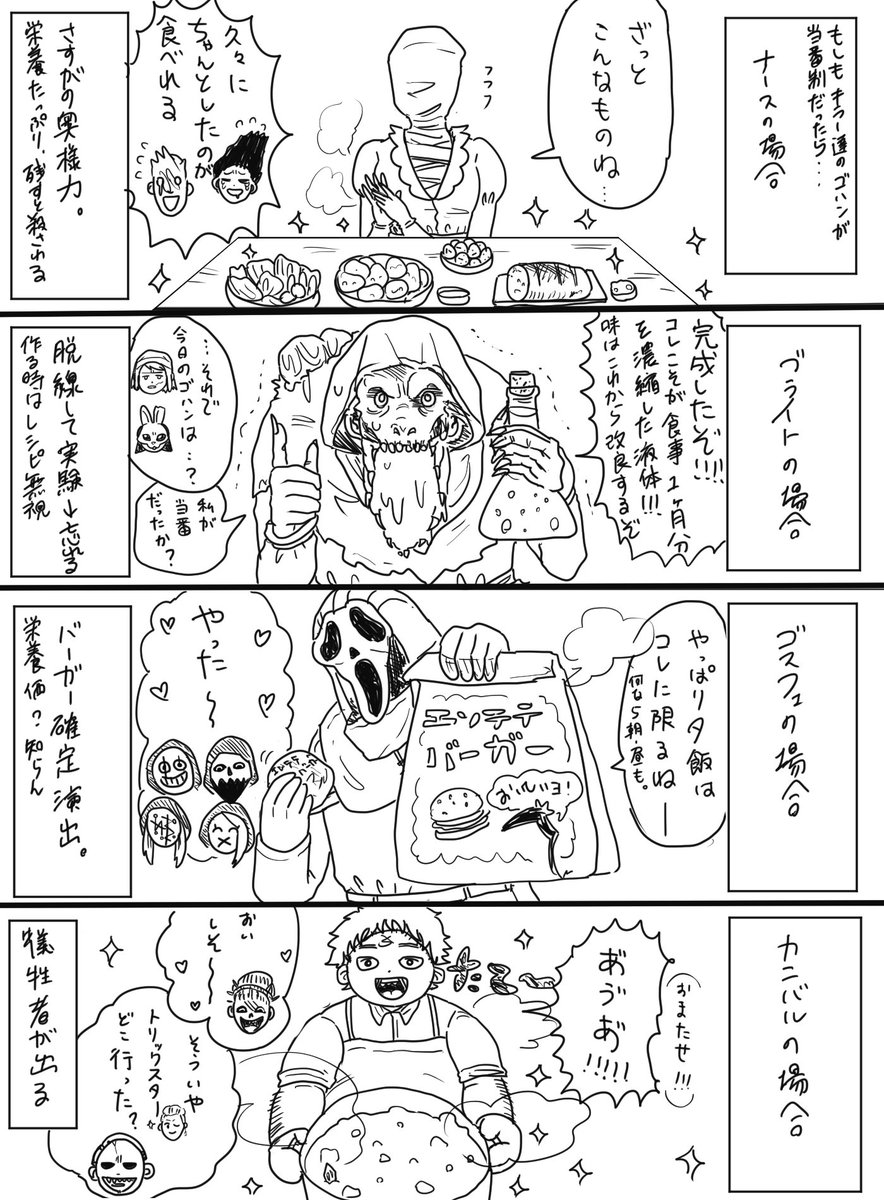 もしもキラー達のゴハンが
当番制だったら…
ナースの場合
ざっと
こんなものね…
フフフ
久々に
ちゃんとしたのが
食べれる
さすがの奥様力。
栄養たっぷり、残すと殺される
ブライトの場合
完成したぞ!!!
コレこそが食事1ヶ月分
を濃縮した液体!!!
味はこれから改良するぞ
…それで
今日のゴハンは…?
私が
当番
だったか?
脱線して実験↓忘れる
作る時はレシピ無視
ゴスフェの場合
やっぱり夕飯は
コレに限るねー
何なら朝・昼も。
エンチテ
バーガー
おいしいヨ!
やった〜
バーガー確定演出。
栄養価?知らん
カニバルの場合
おまたせ!!!
あゔあ゙!!!!!
おい
しそ〜
そういや
トリックスター
どこ行った?
犠牲者が出る